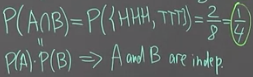 P(A∩B) = P({HHH, TTT}) = 2/8 = 1/4
"
P(A)·P(B) ⟹ A and B are indep.